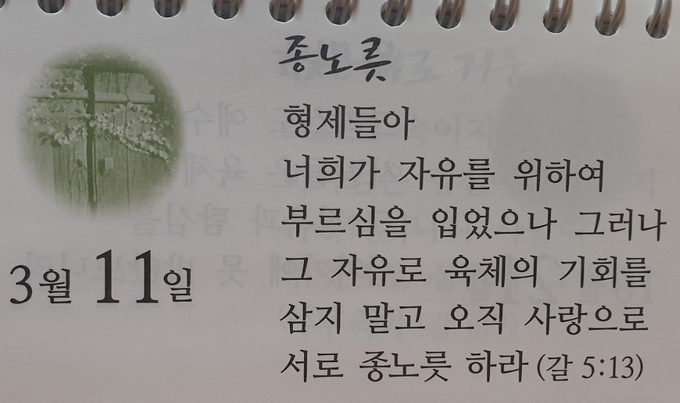 종노릇
형제들아
너희가 자유를 위하여
부르심을 입었으나 그러나
그 자유로 육체의 기회를
삼지 말고 오직 사랑으로
서로 종노릇 하라 (갈 5:13)
3월 11일